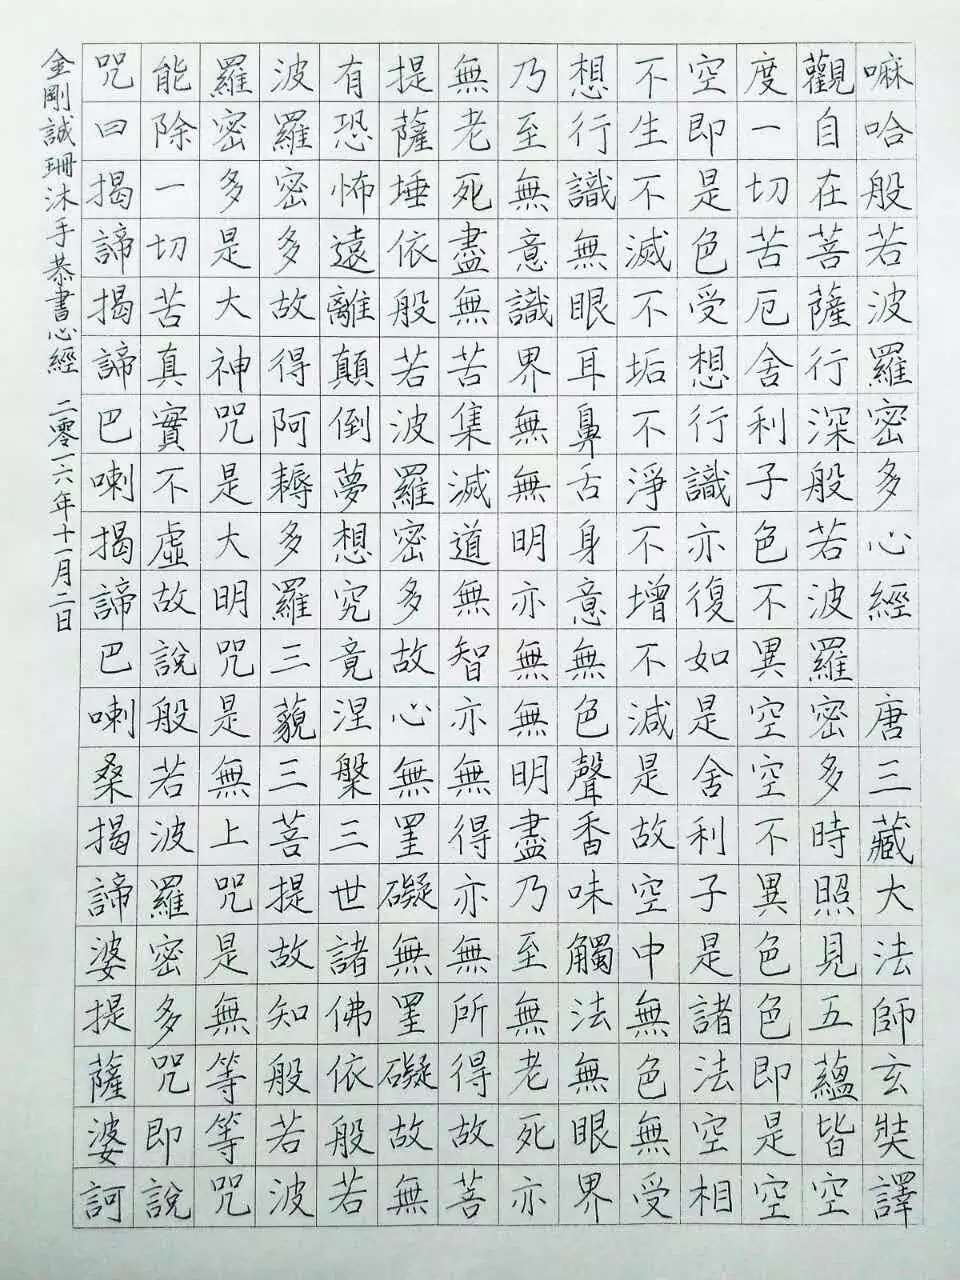 嘛哈般若波羅密多心經 唐三藏大法師玄奘譯
觀自在菩薩行深般若波羅密多時照見五蘊皆空
度一切苦厄舍利子色不異空空不異色色即是空
空即是色受想行識亦復如是舍利子是諸法空相
不生不滅不垢不淨不增不減是故空中無色無受
想行識無眼耳鼻舌身意無色聲香味觸法無眼界
乃至無意識界無明亦無無明盡乃至無老死亦
無老死盡無苦集滅道無智亦無得亦無所得故菩
提薩埵依般若波羅密多故心無罣礙無罣礙故無
有恐怖遠離顛倒夢想究竟涅槃三世諸佛依般若
波羅密多故得阿耨多羅三藐三菩提故知般若波
羅密多是大神咒是大明咒是無上咒是無等等咒
能除一切苦真實不虛故說般若波羅密多咒即說
咒曰揭諦揭諦巴喇揭諦巴喇桑揭諦婆提薩婆訶
金剛誠珊沐手恭書心經 二零一六年十一月二日